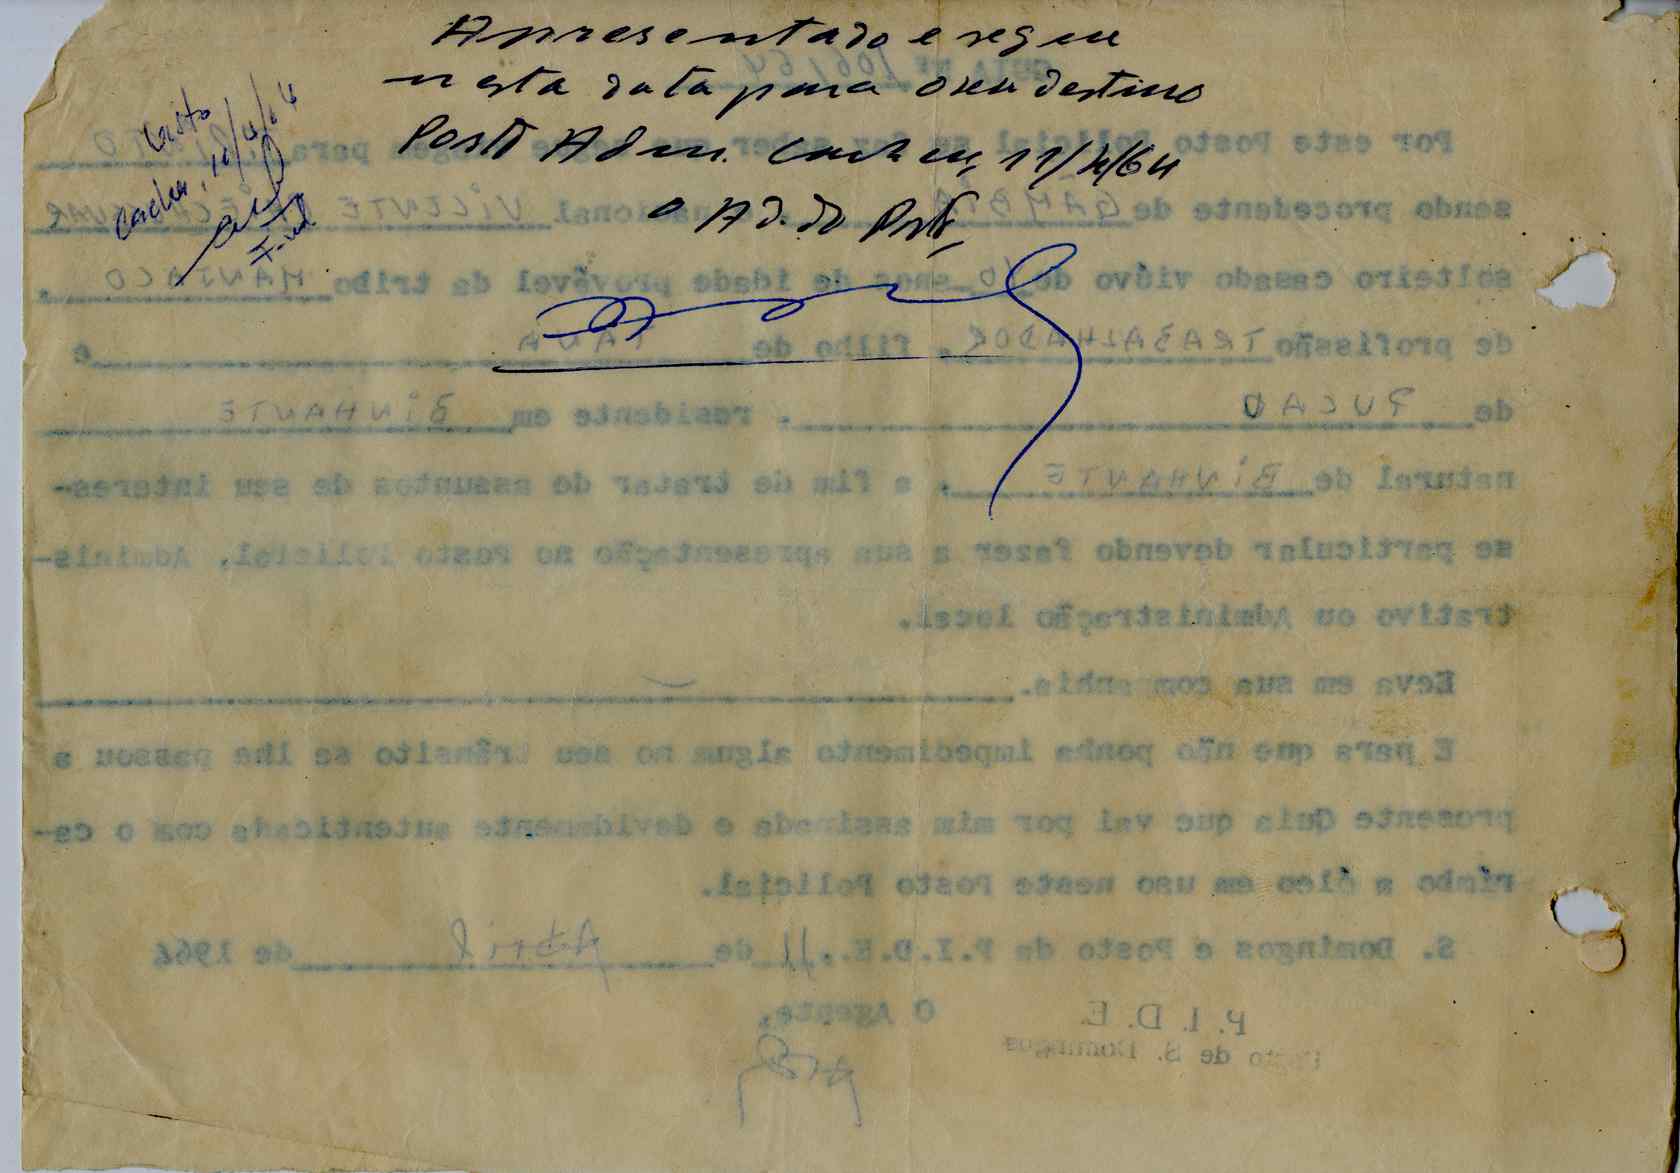 Apresentado e segue
nesta data para o seu destino
Posto Adm. Cacheu, 11/4/64
O Ad. do Posto,
Visto
Cacheu, 11/4/64
GUIA Nº 106/64
Por este Posto Policial se faz saber que segue viagem para
sendo procedente de GAMBIA, nacional VICENTE
solteiro casado viúvo de anos de idade provável da tribo MANJACO,
de profissão TRABALHADOR, filho de e
de PUCAU, residente em BINHANTE
natural de BINHANTE, a fim de tratar de assuntos de seu interes-
se particular devendo fazer a sua apresentação no Posto Policial, Adminis-
trativo ou Administração local.
Eeva em sua companhia.
E para que não ponha impedimento algum no seu trânsito se lhe passou a
presente Guia que vai por mim assinada e devidamente autenticada com o ca-
rimbo a óleo em uso neste Posto Policial.
S. Domingos e Posto da P.I.D.E., 11 de Abril de 1964
O Agente,
P. I. D. E.
Posto de S. Domingos